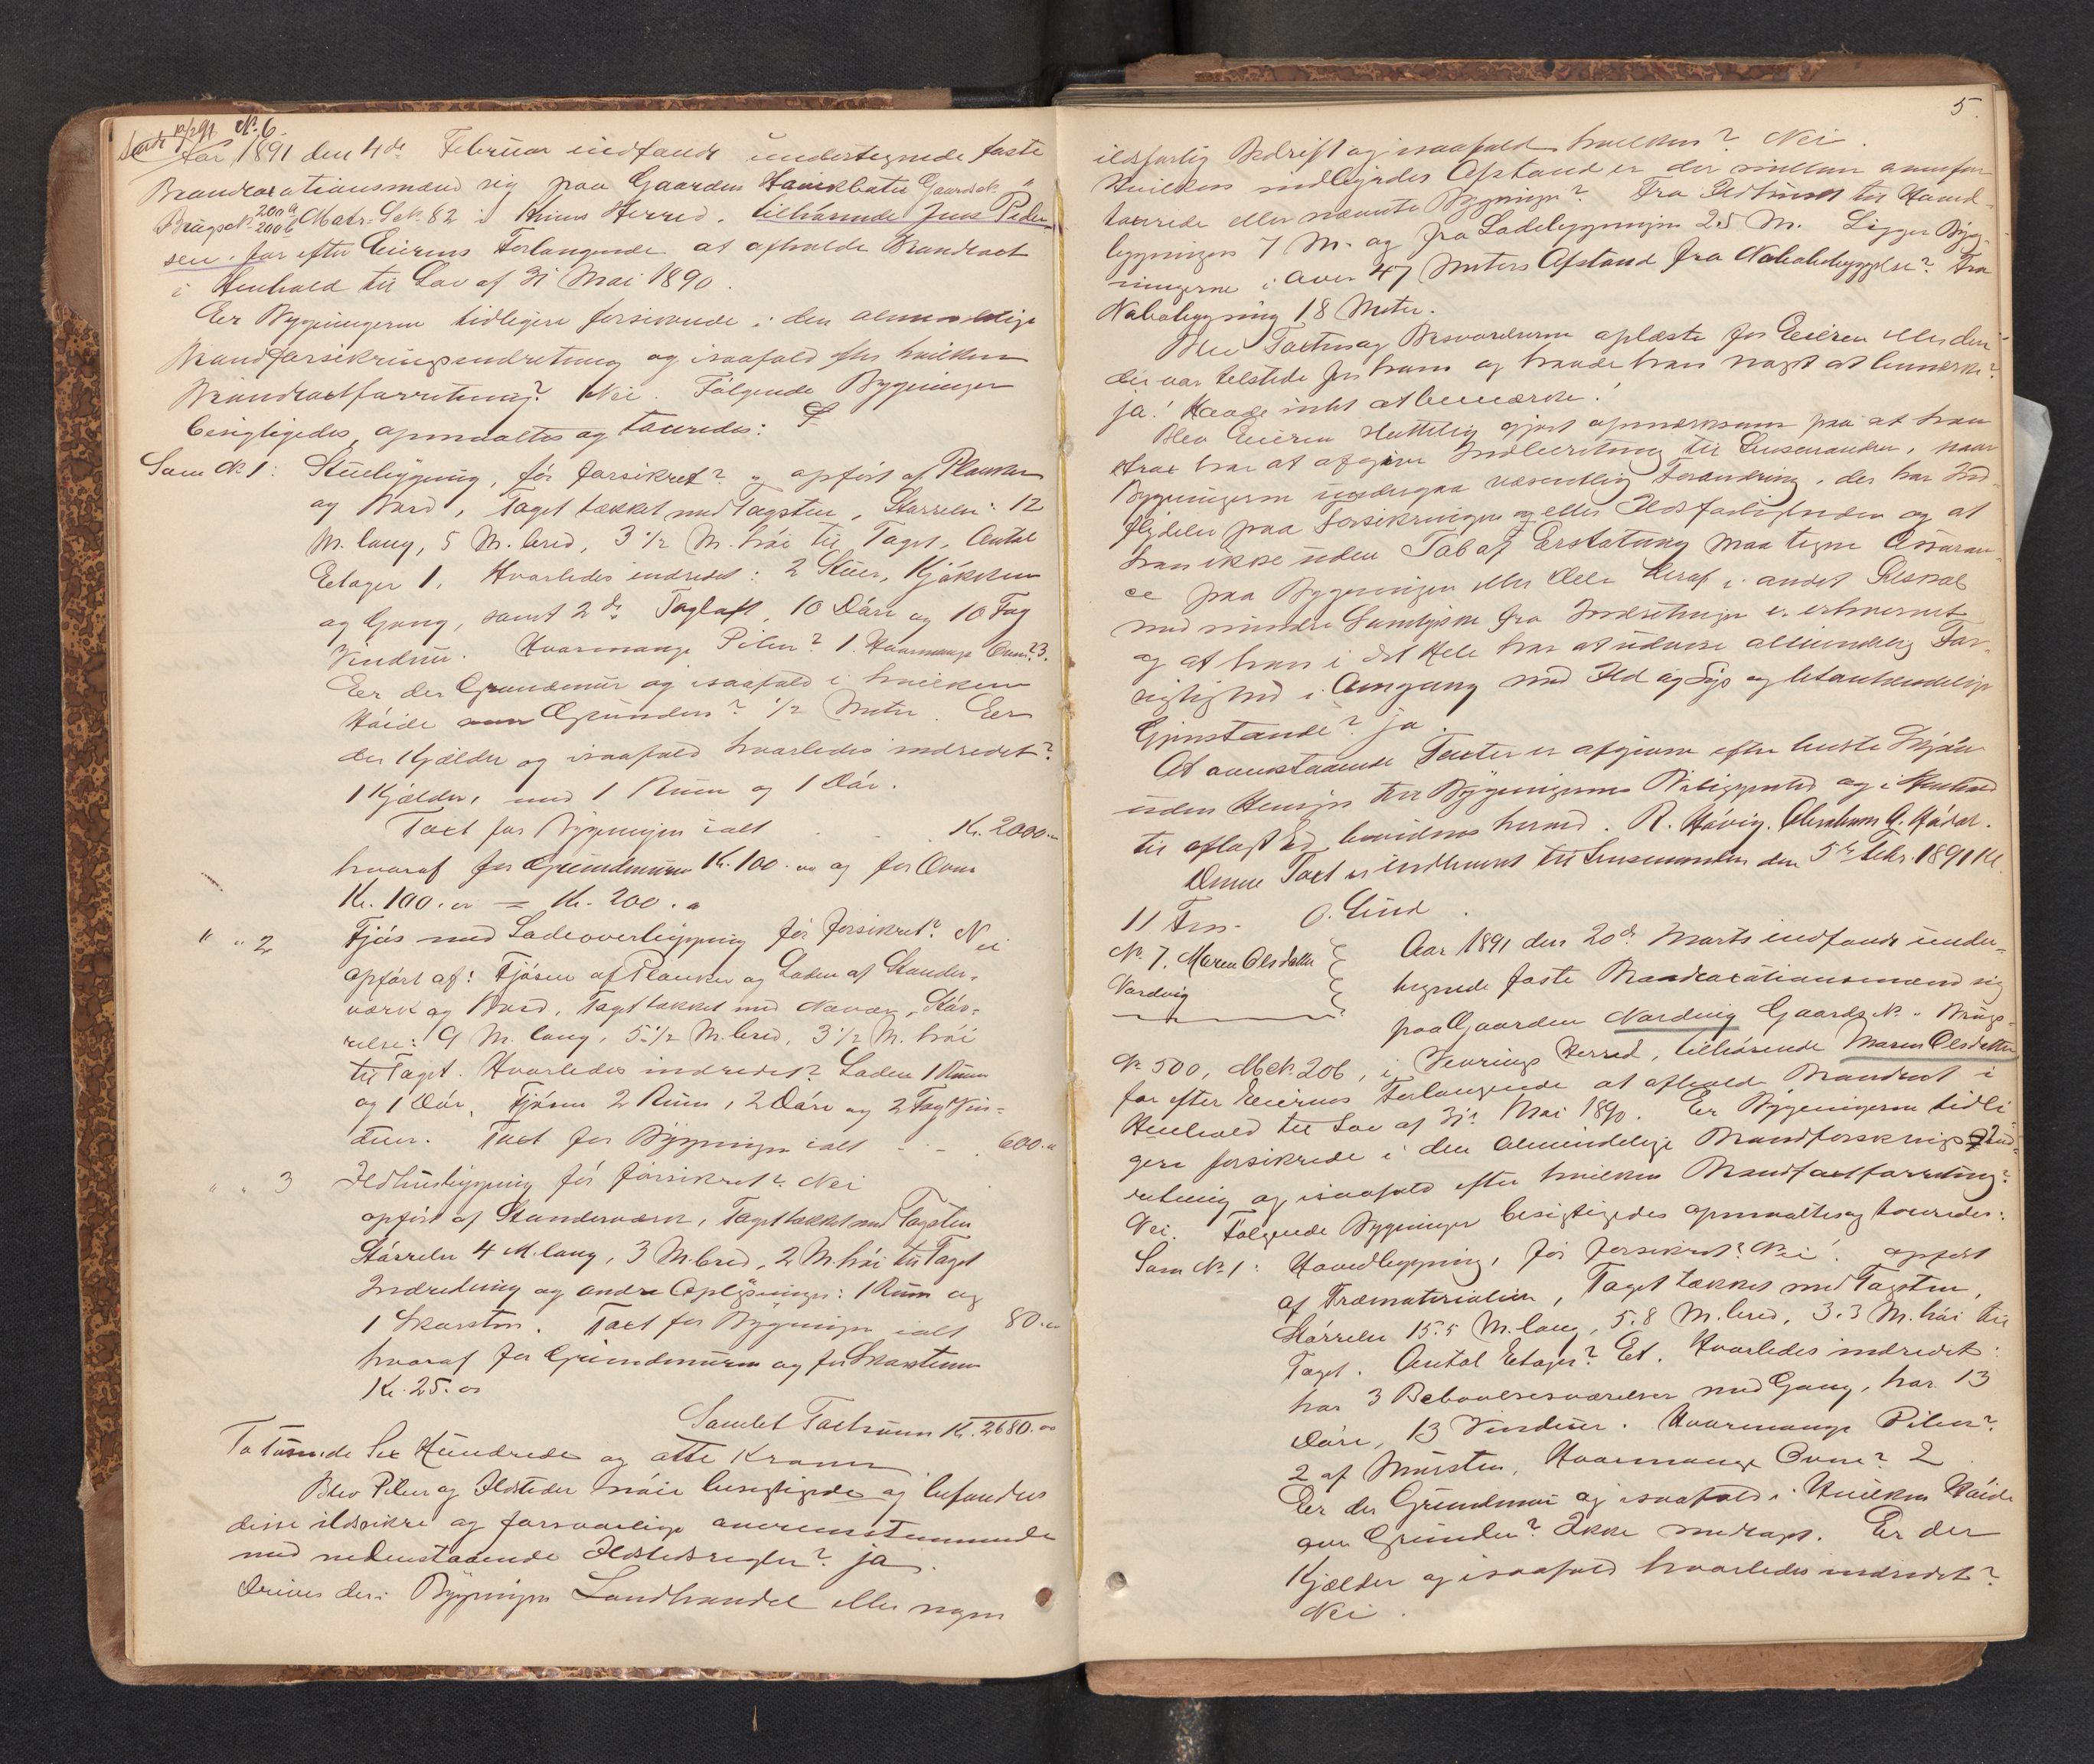 No. 6.
Aar 1891 den 4de Februar indfandt undertegnede faste
Brandtaxationsmænd sig paa Gaarden Gaards No. "
Brugs No. 200a 200b Matr. L. No. 82 i Herred, tilhørende Jens Peder-
sen, for efter Eierens Forlangende at afholde Brandtaxt
i Henhold til Lov af 31 Mai 1890.
Eer Bygningerne tidligere forsikrede i den almindelige
Brandforsikringsindretning og isaafald efter hvilken
Brandtaxtforretning? Nei. Følgende Bygninger
besigtigedes, opmaaltes og taxeredes:
Som No 1: Stuebygning, før forsikret? " opført af Planker
og Bord, Taget tækket med Tagsten, Størrelse: 12
M. lang, 5 M. bred, 3 1/2 M. høi til Taget, Antal
Etager 1. Hvorledes indredet: 2 Stuer, Kjøkken
og Gang, samt 2de Tagloft, 10 Døre og 10 Fag
Vinduer. Hvormange Piber? 1. Hvormange Ovne? 3.
Eer der Grundmur og isaafald i hvilken
Høide over Grunden? 1/2 Meter. Eer
der Kjælder og isaafald hvorledes indredet?
1 Kjælder, med 1 Rum og 1 Dør.
Taxt for Bygningen ialt Kr. 2000.
hvoraf for Grundmuren Kr. 100. og for Ovne
Kr. 100. = Kr. 200.
" " 2 Fjøs med Ladeoverbygning før forsikret? Nei
opført af: Fjøsen af Planker og Laden af Stander-
værk og Bord, Taget tækket med Næver, Stør-
relse: 9 M. lang, 5 1/2 M. bred, 3 1/2 M. høi
til Taget. Hvorledes indredet? Laden 1 Rum
og 1 Dør, Fjøsen 2 Rum, 2 Døre og 2 Fag Vin-
duer. Taxt for Bygningen ialt 600.
" " 3 Ildhusbygning før forsikret? Nei
opført af Standerværk, Taget tækket med Tagsten
Størrelse 4 M. lang, 3 M. bred, 2 M. høi til Taget
Indretning og andre Oplysninger: 1 Rum og
1 Skorsten. Taxt for Bygningen ialt 80.
hvoraf for Grundmuren og for Skorstenen
Kr. 25.
Samlet Taxtsum Kr. 2680.
To Tusinde Sex Hundrede og otti Kroner
Blev Piber og Ildsteder nøie besigtigede og befandtes
disse ildsikre og forsvarlige overensstemmende
med nedenstaaende Ildstedsregler? ja.
Drives der i Bygningen Landhandel eller nogen
5.
ildsfarlig Bedrift og isaafald hvilken? Nei.
Hvilken indbyrdes Afstand er der mellem ovenfor
taxerede eller nævnte Bygninger? Fra Ildhuset til Hoved-
bygningen 7 M. og fra Ladebygningen 25 M. Ligger Byg-
ningerne i over 47 Meters Afstand fra Nabobebyggelse? Fra
Nabobygning 18 Meter.
Blev Taxten og Besvarelserne oplæste for Eieren eller den
der var tilstede for ham og havde han noget at bemærke?
ja! Havde intet at bemærke!
Blev Eieren gjort opmærksom paa at han
strax har at afgive Indberetning til Lensmanden, naar
Bygningerne undergaa væsentlig Forandring, der har Ind-
flydelse paa Forsikringen og eller Ildsfarligheden og at
han ikke uden Tab af Erstatning maa tegne Assuran-
ce paa Bygningen eller Dele deraf i andet Selskab
med mindre Samtykke fra Indretningen er erhvervet
og at han i det Hele har at udvise almindelig For-
sigtighed i Omgang med Ild og Lys og letantændelige
Gjenstande? ja.
At ovenstaaende Taxter er afgivne efter bedste Skjøn
uden Hensyn til Bygningernes Beliggenhed og i Henhold
til aflagt Ed bevidnes herved. R. Høivig. Abraham A. Hødal.
Denne Taxt er indleveret til Lensmanden den 5te Febr. 1891 Kl.
11 Fm. O. Lind.
No. 7. Maren Olsdatter
Nordvig
Aar 1891 den 20de Marts indfandt under-
tegnede faste Brandtaxationsmænd sig
paa Gaarden Nordvig Gaards No. " Brugs-
No 500, M. No. 206, i Herred, tilhørende Maren Olsdatter
for efter Eierens Forlangende at afholde Brandtaxt i
Henhold til Lov af 31te Mai 1890. Er Bygningerne tidli-
gere forsikrede i den almindelige Brandforsikrings Ind-
retning og isaafald efter hvilken Brandtaxtforretning?
Nei. Følgende Bygninger besigtigedes opmaaltes og taxeredes:
Som No 1: Hovedbygning, før forsikret? Nei! opført
af Træmaterialier, Taget tækket med Tagsten,
Størrelse 15.5 M. lang, 5.8 M. bred, 3.3 M. høi til
Taget. Antal Etager? Et. Hvorledes indredet:
har 3 Beboelsesværelser med Gang, har 13
Døre, 13 Vinduer. Hvormange Piber?
2 af Mursten, Hvormange Ovne? 2
Eer der Grundmur og isaafald i Hvilken Høide
over Grunden? Ikke medtaget. Er der
Kjælder og isaafald hvorledes indredet?
Nei.